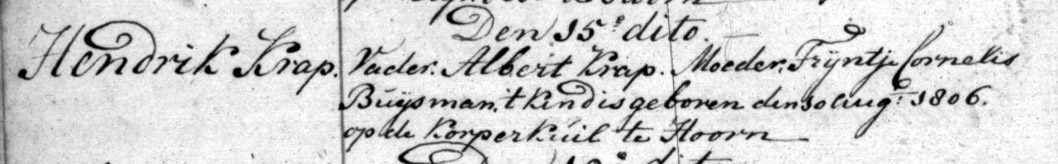 Den 15.e dito.
Hendrik Krap. Vader. Albert Krap. Moeder. Trÿntje Cornelis
Buÿsman. 't Kind is geboren den 10 Aug.t 1806.
op de Korperkuil te Hoorn